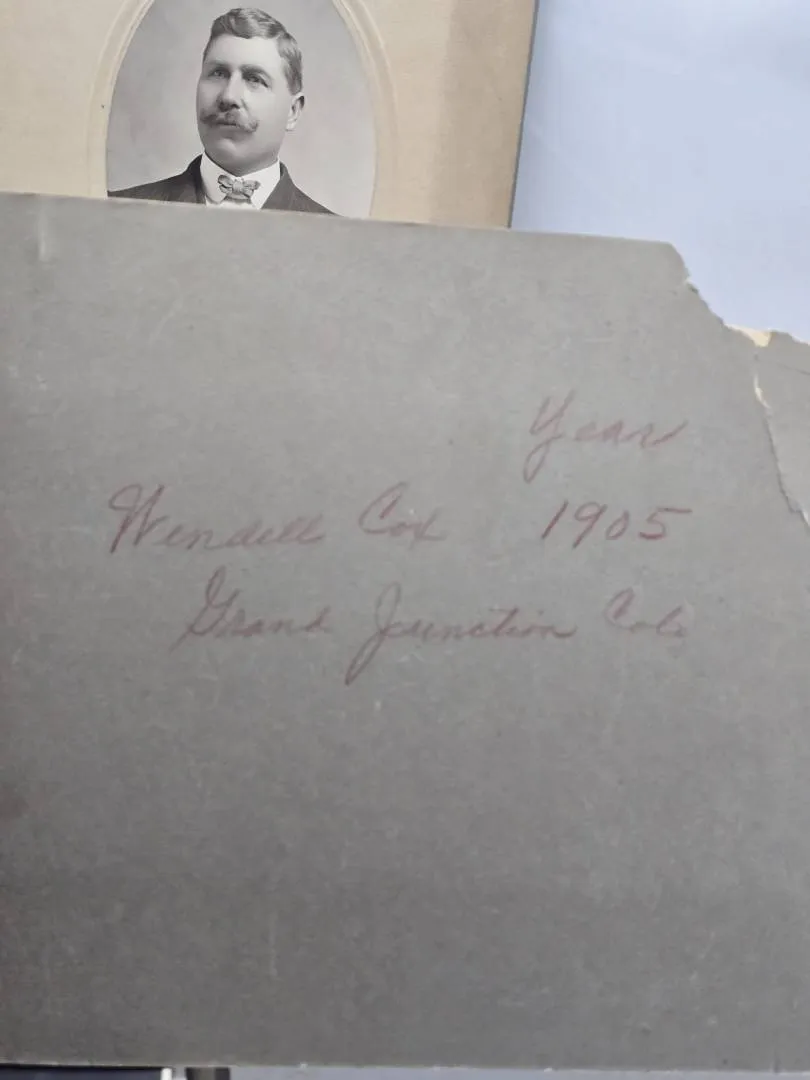 Year
Wendell Cox 1905
Grand Junction Colo